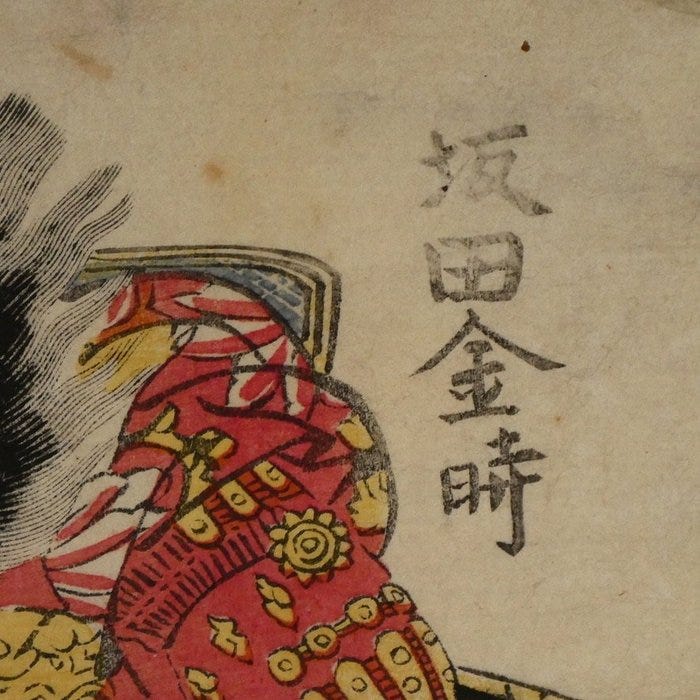 坂田金時